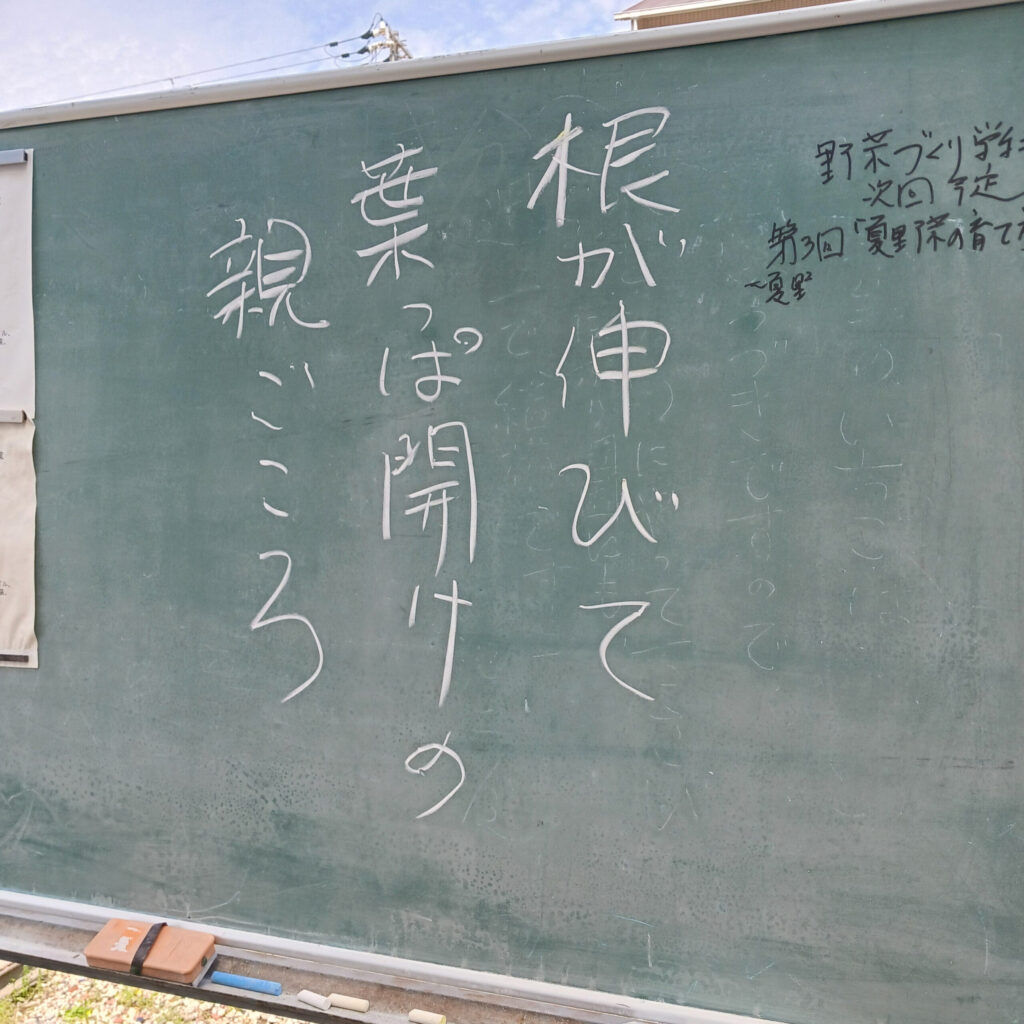 根が伸びて
葉っぱ開けの
親ごころ
野菜づくり学
次回予定
第3回「夏野菜の育て
夏野